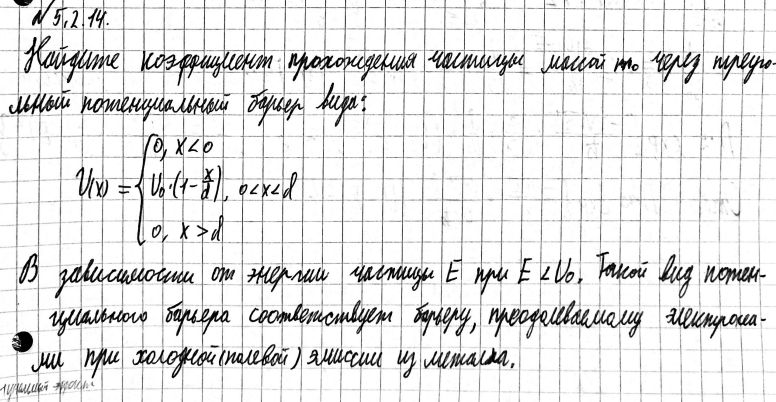 № 5.2.14.
Найдите коэффициент прохождения частицы массой m₀ через треуго-
льный потенциальный барьер вида:
U(x) = { 0, x<0
U₀·(1-x/d), 0<x<d
0, x>d
В зависимости от энергии частицы E при E<U₀. Такой вид потен-
циального барьера соответствует барьеру, преодолеваемому электрона-
ми при холодной (полевой) эмиссии из металла.